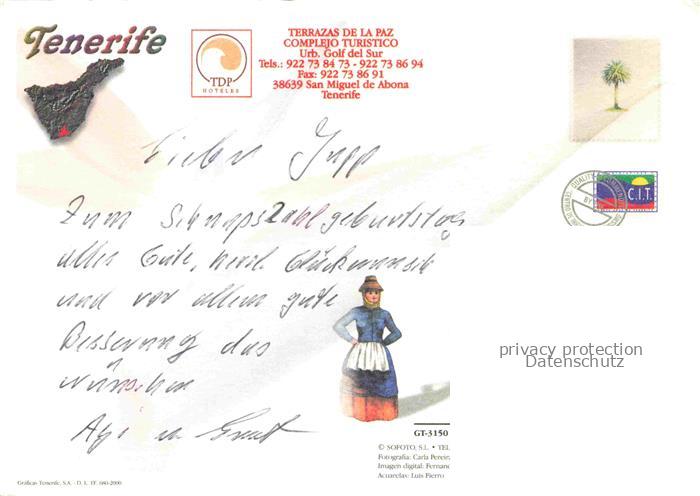 Tenerife
TDP
HOTELES
TERRAZAS DE LA PAZ
COMPLEJO TURISTICO
Urb. Golf del Sur
Tels.: 922 73 84 73 - 922 73 86 94
Fax: 922 73 86 91
38639 San Miguel de Abona
Tenerife
C.I.T.
Lieber Jupp
Zum Schnapszahlgeburtstag
alles Gute, herzl. Glückwunsch
und vor allem gute
Besserung das
wünschen
u. Ernst
privacy protection
Datenschutz
GT-3150
© SOFOTO, S.L. • TEL
Fotografía: Carla Pereira
Imagen digital: Fernand
Acuarelas: Luis Fierro
Gráficas Tenerife, S.A. - D. L. TF. 680-2000